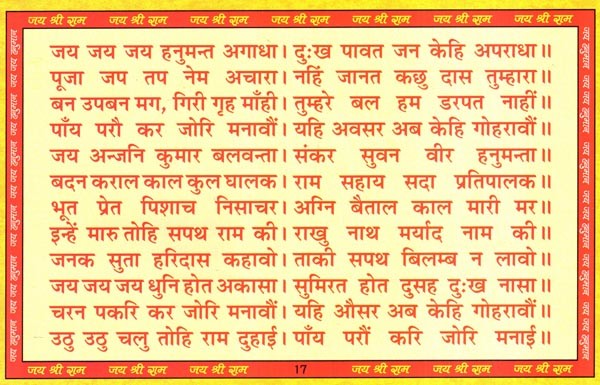 जय श्री राम जय श्री राम जय श्री राम जय श्री राम जय श्री राम
जय जय जय हनुमन्त अगाधा। दुःख पावत जन केहि अपराधा॥
पूजा जप तप नेम अचारा। नहिं जानत कछु दास तुम्हारा॥
बन उपबन मग, गिरी गृह माँही। तुम्हरे बल हम डरपत नाहीं॥
पाँय परौ कर जोरि मनावौं। यहि अवसर अब केहि गोहरावौं॥
जय अन्जनि कुमार बलवन्ता। संकर सुवन वीर हनुमन्ता॥
बदन कराल काल कुल घालक। राम सहाय सदा प्रतिपालक॥
भूत प्रेत पिशाच निसाचर। अग्नि बैताल काल मारी मर॥
इन्हें मारु तोहि सपथ राम की। राखु नाथ मर्याद नाम की॥
जनक सुता हरिदास कहावो। ताकी सपथ बिलम्ब न लावो॥
जय जय जय धुनि होत अकासा। सुमिरत होत दुसह दुःख नासा॥
चरन पकरि कर जोरि मनावौं। यहि औसर अब केहि गोहरावौं॥
उठु उठु चलु तोहि राम दुहाई। पाँय परौं करि जोरि मनाई॥
जय श्री राम जय श्री राम 17 जय श्री राम जय श्री राम
जय जय हनुमान जय जय हनुमान जय जय हनुमान जय जय हनुमान
जय जय हनुमान जय जय हनुमान जय जय हनुमान जय जय हनुमान